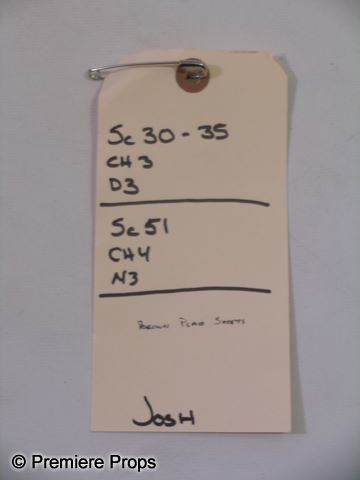 Sc 30 - 35
CH 3
D3
Sc 51
CH4
N3
BROWN PLAID SHORTS
JOSH
© Premiere Props